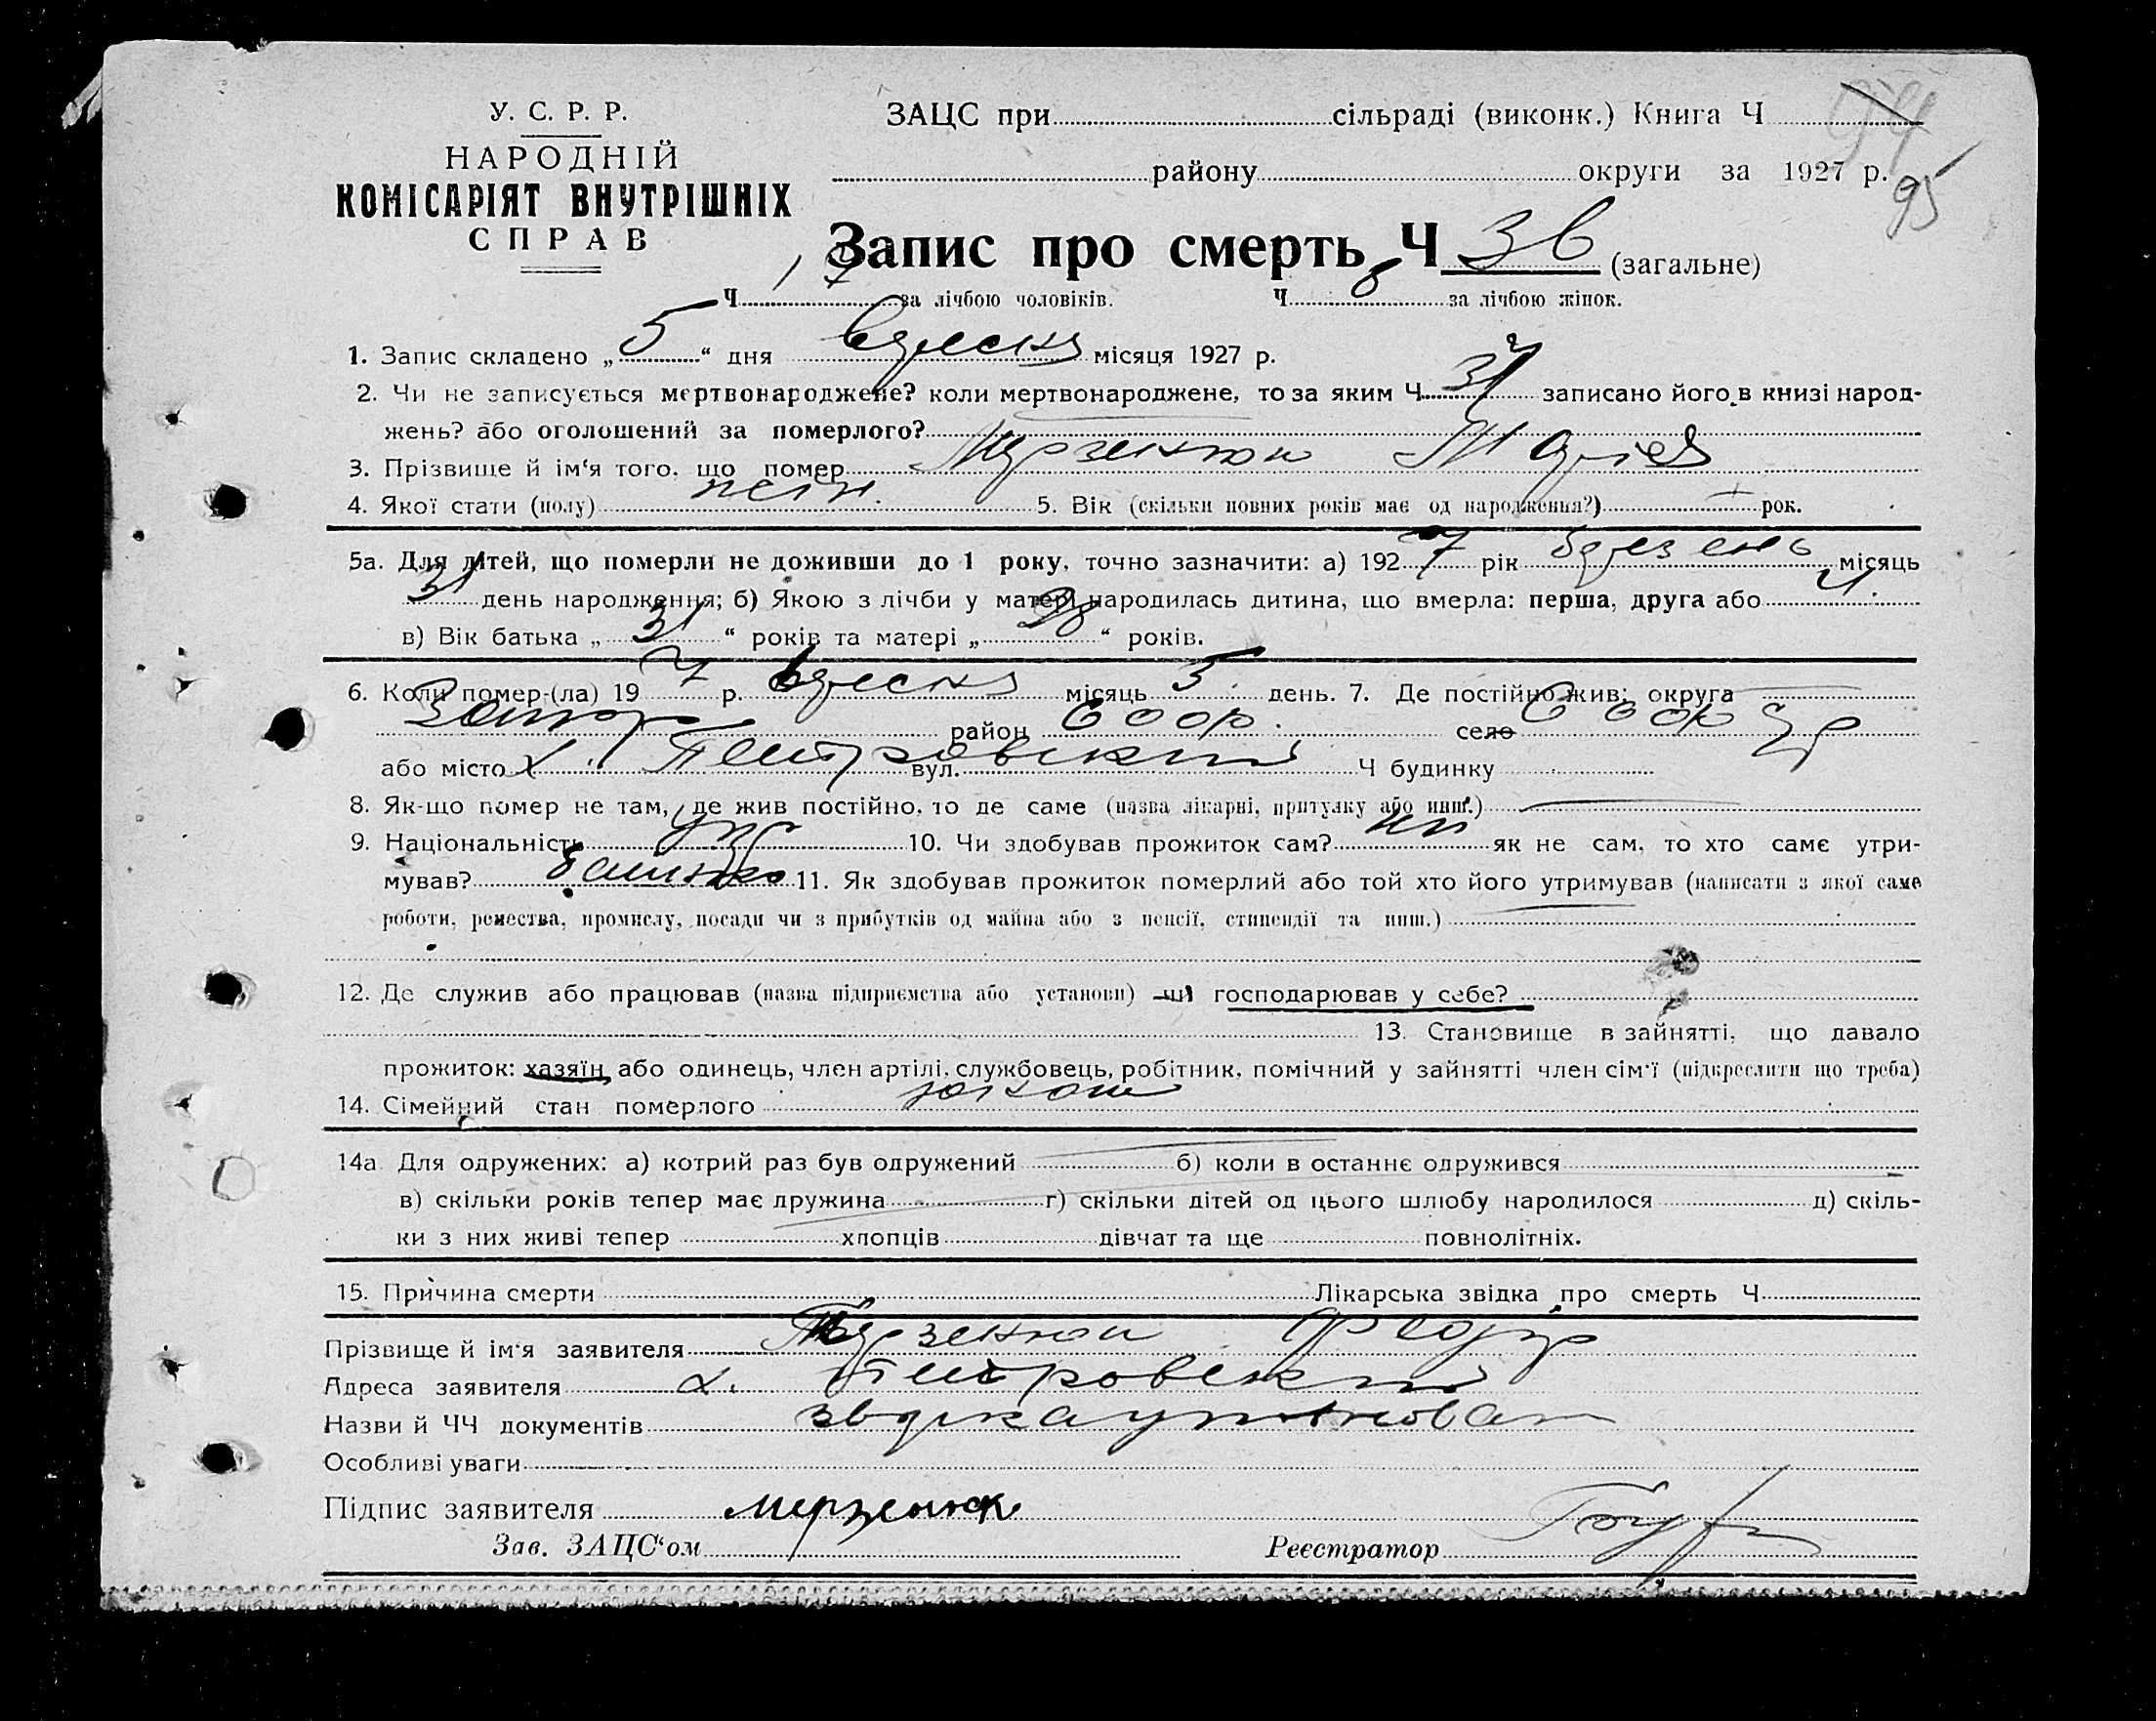 94
У. С. Р. Р.
ЗАЦС при сільраді (виконк.) Книга Ч
НАРОДНІЙ
району округи за 1927 р.
95
КОМІСАРІЯТ ВНУТРІШНІХ
СПРАВ
Запис про смерть Ч 36 (загальне)
Ч за лічбою чоловіків. Ч 8 за лічбою жінок.
1. Запис складено „5“ дня вересня місяця 1927 р.
2. Чи не записується мертвонароджене? коли мертвонароджене, то за яким Ч записано його в книзі народ-
жень? або оголошений за померлого?
3. Прізвище й ім‘я того, що помер Мерзенюк Марія
4. Якої стати (полу) 5. Вік (скільки повних років має од народження?) рок.
5а. Для дітей, що померли не доживши до 1 року, точно зазначити: а) 1927 рік березень місяць
31 день народження; б) Якою з лічби у матері народилась дитина, що вмерла: перша, друга або 4.
в) Вік батька „31“ років та матері „ “ років.
6. Коли помер-(ла) 1927 р. вересня місяць 5 день. 7. Де постійно жив: округа
район село
або місто х. Петровский вул. Ч будинку
8. Як-що помер не там, де жив постійно, то де саме (назва лікарні, притулку або инш.)
9. Національність укр 10. Чи здобував прожиток сам? ні як не сам, то хто саме утри-
мував? батько 11. Як здобував прожиток померлий або той хто його утримував (написати з якої саме
роботи, ремества, промислу, посади чи з прибутків од майна або з пенсії, стипендії та инш.)
12. Де служив або працював (назва підприємства або установи) чи господарював у себе?
13. Становище в зайнятті, що давало
прожиток: хазяїн або одинець, член артілі, службовець, робітник, помічний у зайнятті член сім‘ї (підкреслити що треба)
14. Сімейний стан померлого
14а Для одружених: а) котрий раз був одружений б) коли в останнє одружився
в) скільки років тепер має дружина г) скільки дітей од цього шлюбу народилося д) скіль-
ки з них живі тепер хлопців дівчат та ще повнолітніх.
15. Причина смерти Лікарська звідка про смерть Ч
Прізвище й ім‘я заявителя Мерзенюк Федір
Адреса заявителя х. Петровский
Назви й ЧЧ документів
Особливі уваги
Підпис заявителя Мерзенюк
Зав. ЗАЦС‘ом Реєстратор